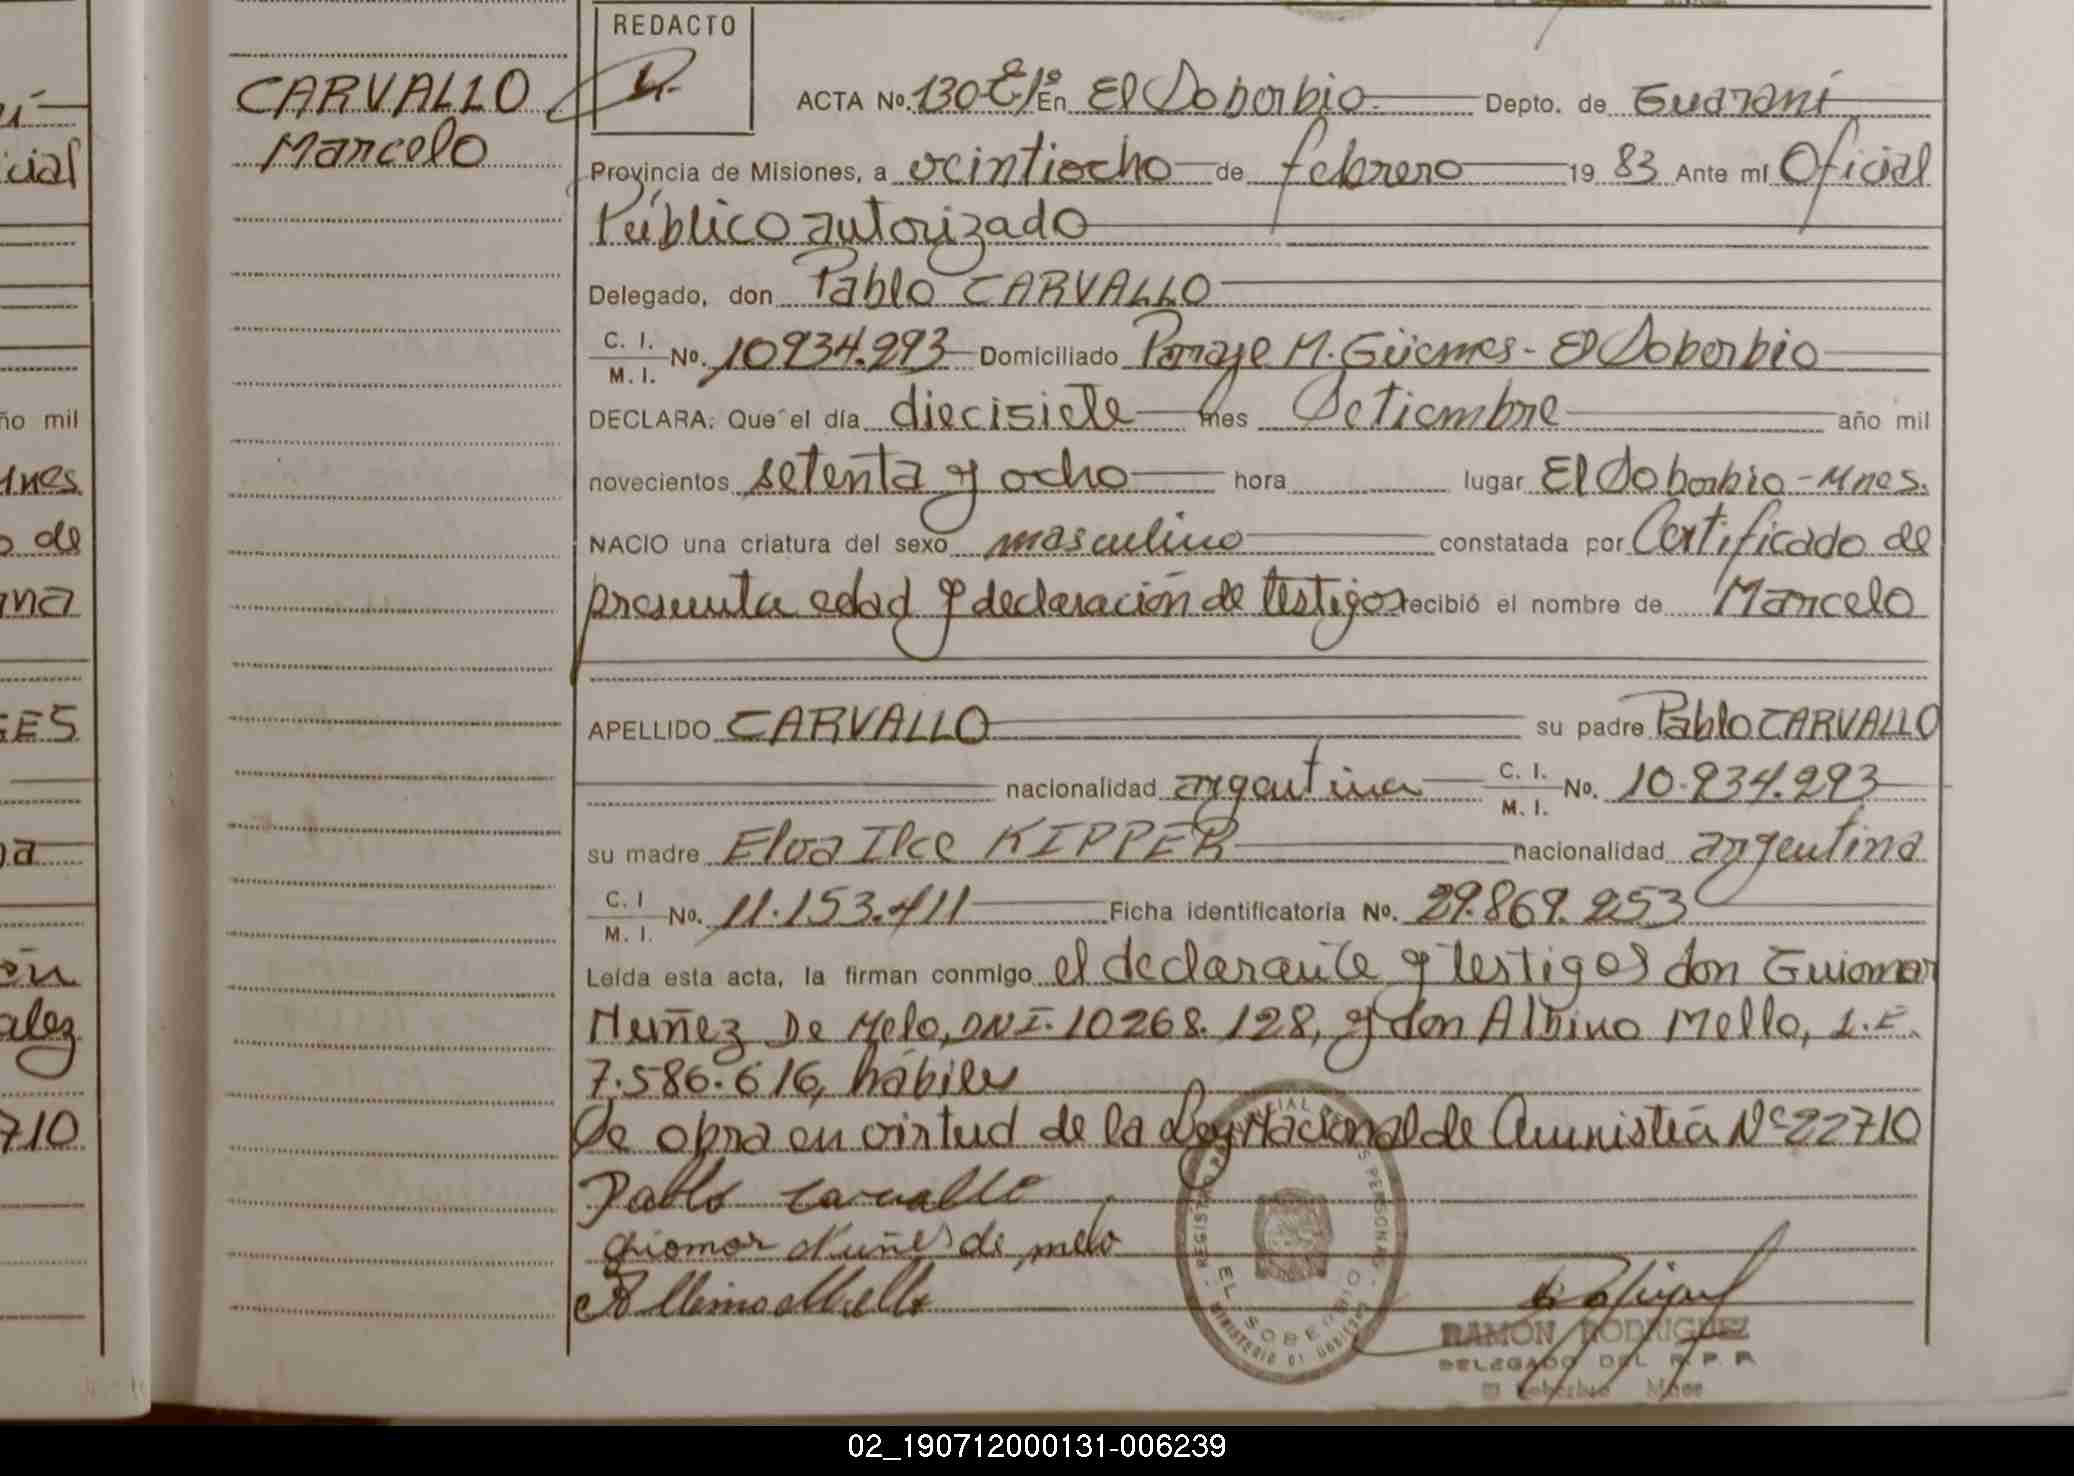 REDACTO
CARVALLO
Marcelo
ACTA No. 130 En El Soberbio Depto. de Guaraní
Provincia de Misiones, a veintiocho de febrero 19 83 Ante mí Oficial
Público autorizado
Delegado, don Pablo CARVALLO
C. I. M. I. No. 10934.293 Domiciliado Paraje M. Güemes - El Soberbio
DECLARA: Que el día diecisiete mes Setiembre año mil
novecientos setenta y ocho hora lugar El Soberbio - Mnes.
NACIO una criatura del sexo masculino constatada por Certificado de
presunta edad y declaración de testigos recibió el nombre de Marcelo
APELLIDO CARVALLO su padre Pablo CARVALLO
nacionalidad argentina C. I. M. I. No. 10.934.293
su madre Elva Ilce KIPPER nacionalidad argentina
C. I M. I. No. 11.153.411 Ficha identificatoria No. 29.869.253
Leída esta acta, la firman conmigo el declarante y testigos don Guiomar
Nuñez De Melo, DNI. 10268.128, y don Albino Mello, L.E.
7.586.616, hábiles
Se obra en virtud de la Ley Nacional de Amnistía Nº 22710
Pablo Carvallo
Giomar Nuñes de melo
Albino Mello
EL SOBERBIO
RAMÓN RODRIGUEZ
DELEGADO DEL R. P. P.
El Soberbio Mnes
ño mil
cial
nes
de
na
GES
alez
710
02_190712000131-006239